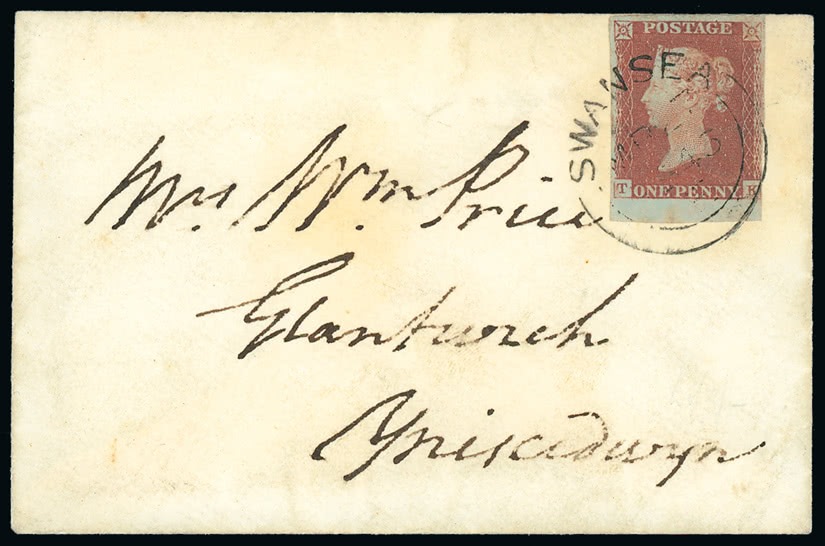 POSTAGE
SWANSEA
T ONE PENNY K
Mrs Wm Price
Glantwrch
Yniscedwyn